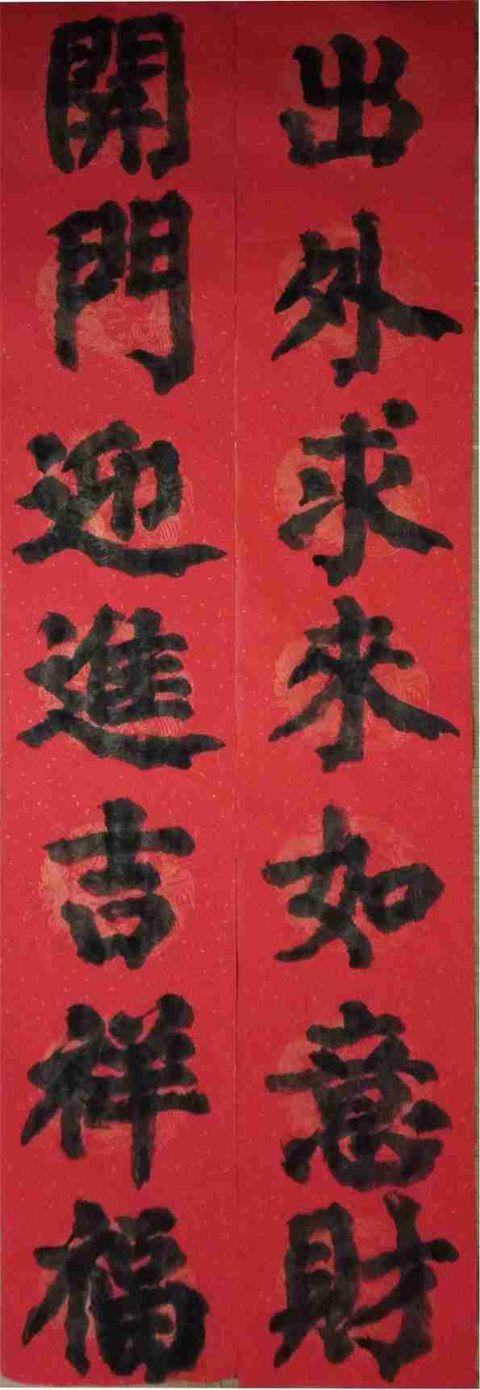 出外求來如意財
開門迎進吉祥福